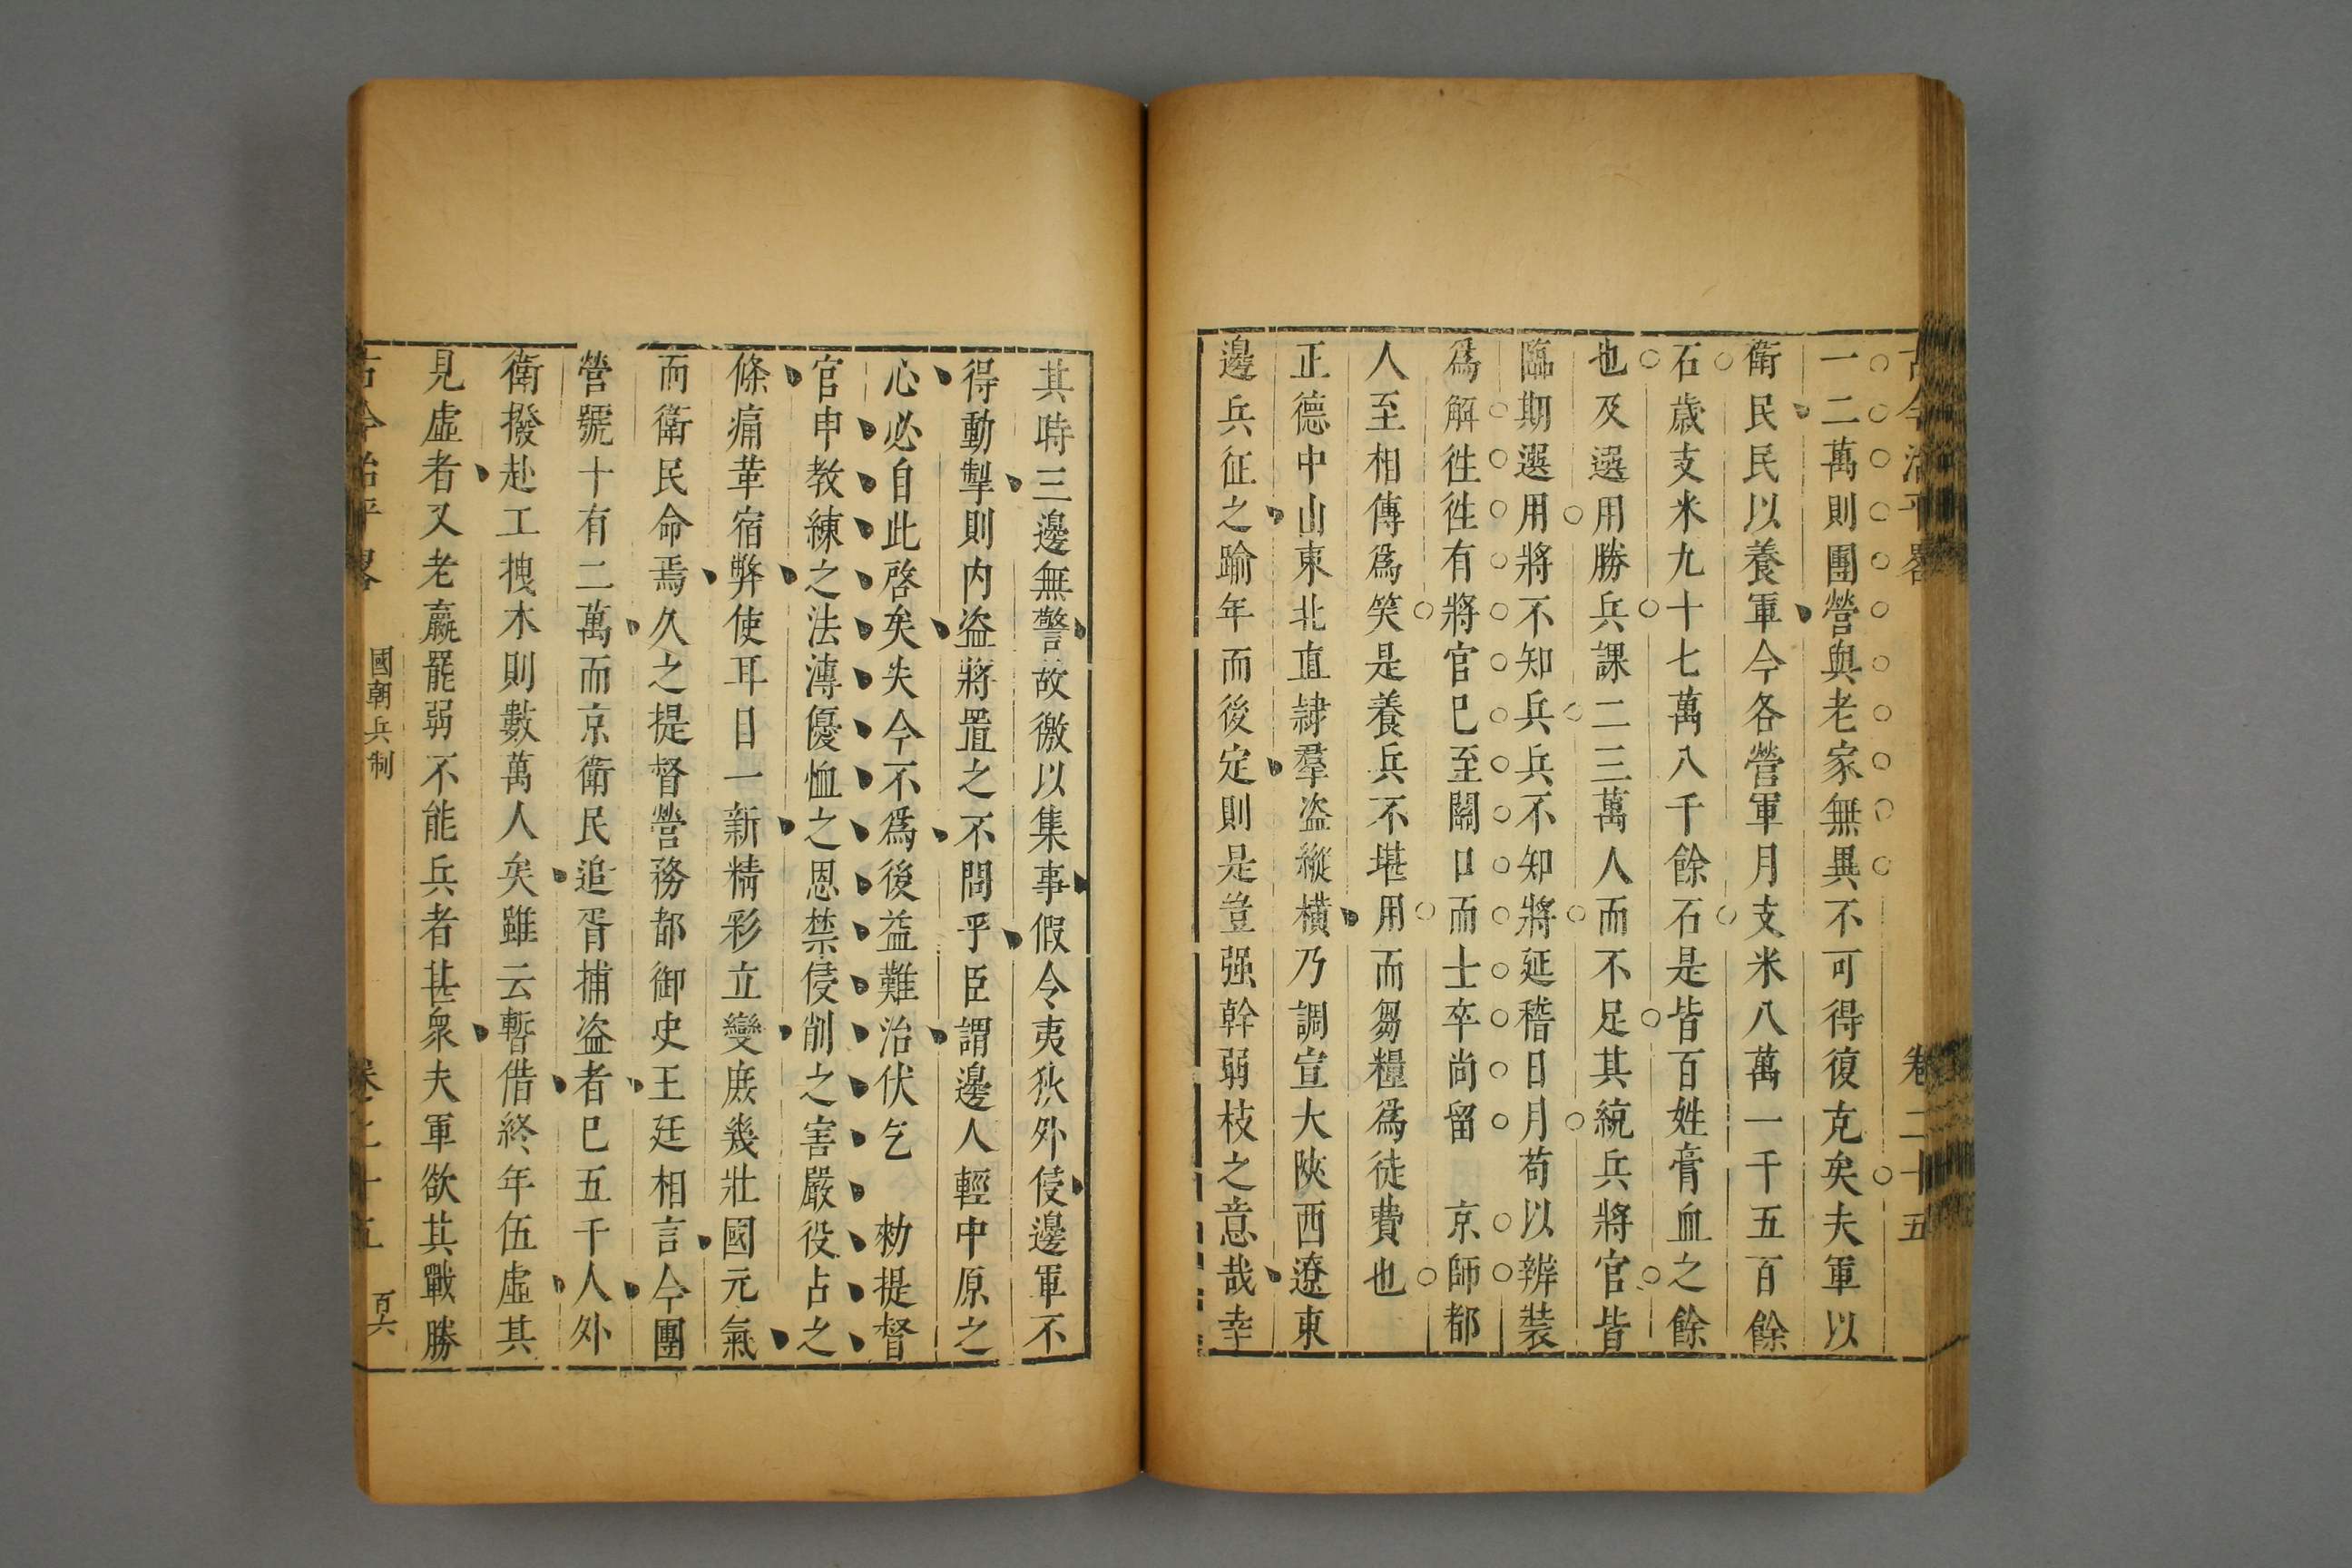 古今治平畧 卷二十五
一二萬則團營與老家無異不可得復克矣夫軍以
衛民民以養軍今各營軍月支米八萬一千五百餘
石歲支米九十七萬八千餘石是皆百姓膏血之餘
也及選用勝兵課二三萬人而不足其統兵將官皆
臨期選用將不知兵兵不知將延稽日月苟以辨裝
爲解徃徃有將官巳至關口而士卒尚留 京師都
人至相傳爲笑是養兵不堪用而芻糧爲徒費也
正德中山東北直隷羣盜縱橫乃調宣大陝西遼東
邊兵征之踰年而後定則是豈强幹弱枝之意哉幸
其時三邊無警故徼以集事假令夷狄外侵邊軍不
得動掣則内盜將置之不問乎臣謂邊人輕中原之
心必自此啓矣失今不爲後益難治伏乞 勑提督
官申教練之法溥優恤之恩禁侵削之害嚴役占之
條痛革宿弊使耳目一新精彩立變庶幾壯國元氣
而衛民命焉久之提督營務都御史王廷相言今團
營號十有二萬而京衛民追胥捕盜者巳五千人外
衛撥赴工拽木則數萬人矣雖云暫借終年伍虛其
見虛者又老羸罷弱不能兵者甚衆夫軍欲其戰勝
古今治平畧 國朝兵制 卷二十五 百六